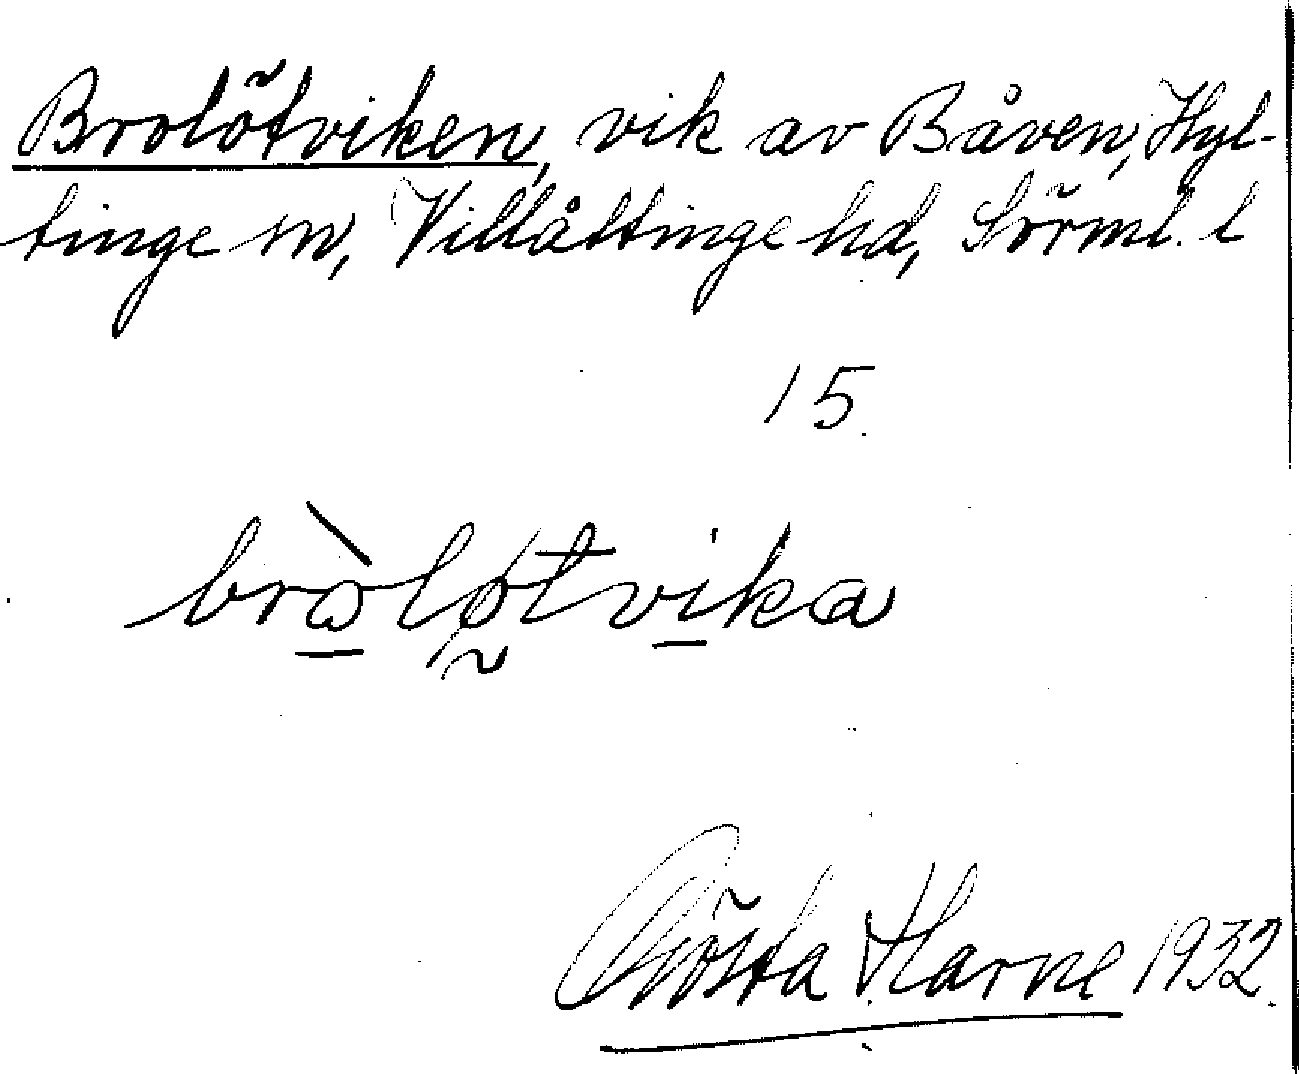 Brolötviken, vik av Båven, Hyl-
tinge sn, Villåttinge hd, Sörml. l
15.
bròlø̰tvika
Gösta Harne 1932.